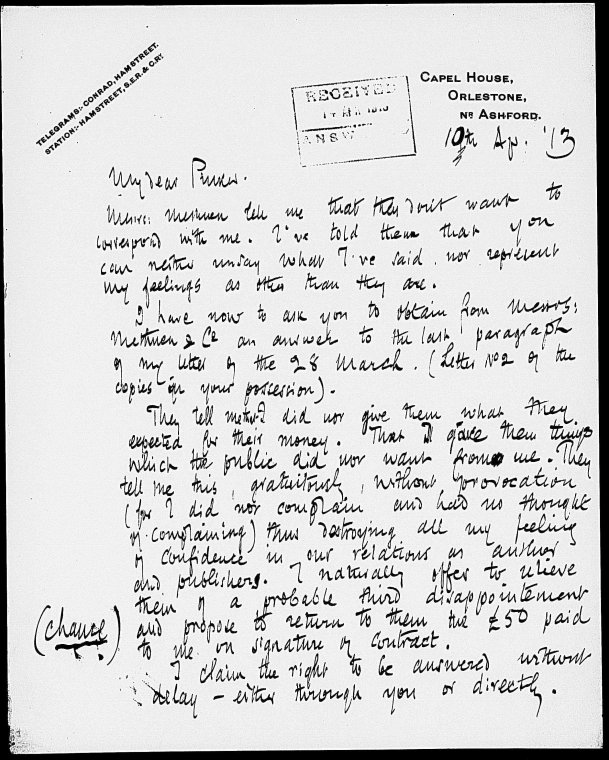 TELEGRAMS:- CONRAD, HAMSTREET.
STATION:- HAMSTREET, S.E.R. & C.RY.
RECEIVED
ANSW
CAPEL HOUSE,
ORLESTONE,
NR ASHFORD.
10th Ap. '13
My dear Pinker.
Messrs: Methuen tell me that they don't want to
correspond with me. I've told them that you
can neither unsay what I've said nor represent
my feelings as other than they are.
I have now to ask you to obtain from Messrs:
Methuen & Co an answer to the last paragraph
of my letter of the 28 March. (Letter No 2 of the
copies in your possession).
They tell me that I did not give them what they
expected for their money. That I gave them things
which the public did not want from me. They
tell me this, gratuitously, without provocation
(for I did not complain and had no thought
of complaining) thus destroying all my feeling
of confidence in our relations as author
and publishers. I naturally offer to relieve
them of a probable third disappointement
(Chance) and propose to return to them the £50 paid
to me on signature of contract.
I claim the right to be answered without
delay – either through you or directly.